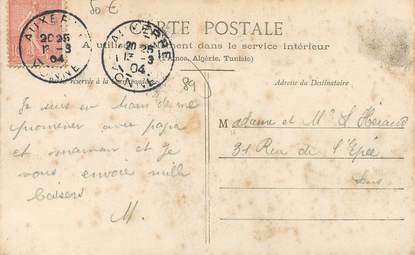 80 €
CARTE POSTALE
A utiliser seulement dans le service intérieur
(France, Algérie, Tunisie)
AUXERRE
20 25
1-3
04
YONNE
AUXERRE
20 25
1-3
04
YONNE
réservée à la correspondance
Adresse du Destinataire
89
Je suis en train de me
promener avec papa
et maman et je
vous envoie mille
baisers
M.
Madame et Mr L Hérard
31 Rue de l'Epée
Sens